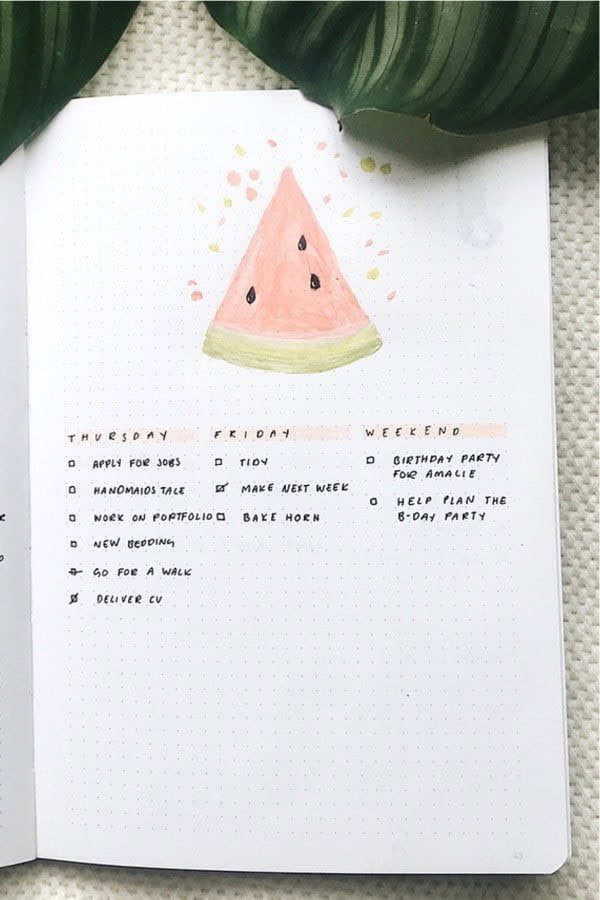 THURSDAY
APPLY FOR JOBS
HANDMAIDS TALE
WORK ON PORTFOLIO
NEW BEDDING
GO FOR A WALK
DELIVER CV
FRIDAY
TIDY
MAKE NEXT WEEK
BAKE HORN
WEEKEND
BIRTHDAY PARTY
FOR AMALIE
HELP PLAN THE
B-DAY PARTY